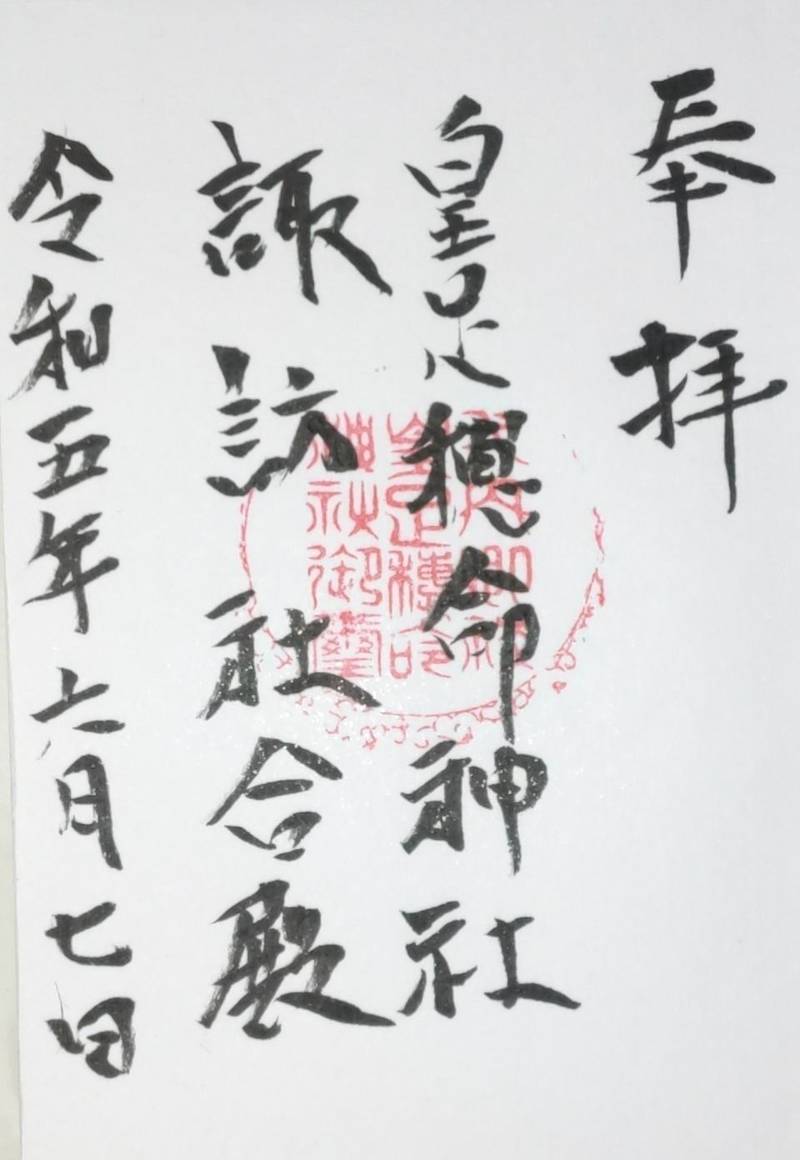 奉拝
皇足穂命神社
諏訪社合殿
令和五年六月七日